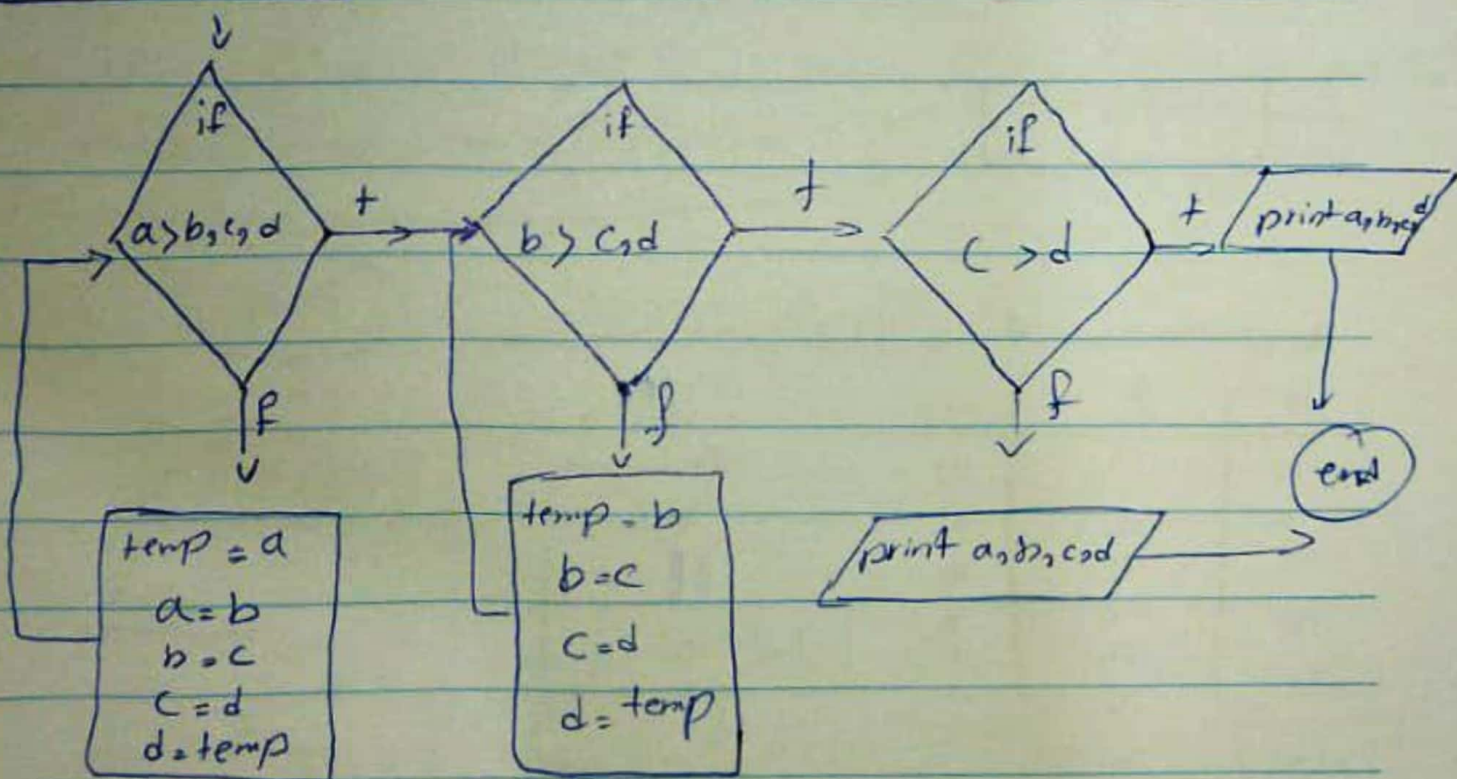 if
a>b,c,d
t
if
b > c,d
t
if
c > d
t
print a,b,c,d
f
f
f
temp = a
a = b
b = c
c = d
d = temp
temp = b
b = c
c = d
d = temp
print a,b,c,d
end